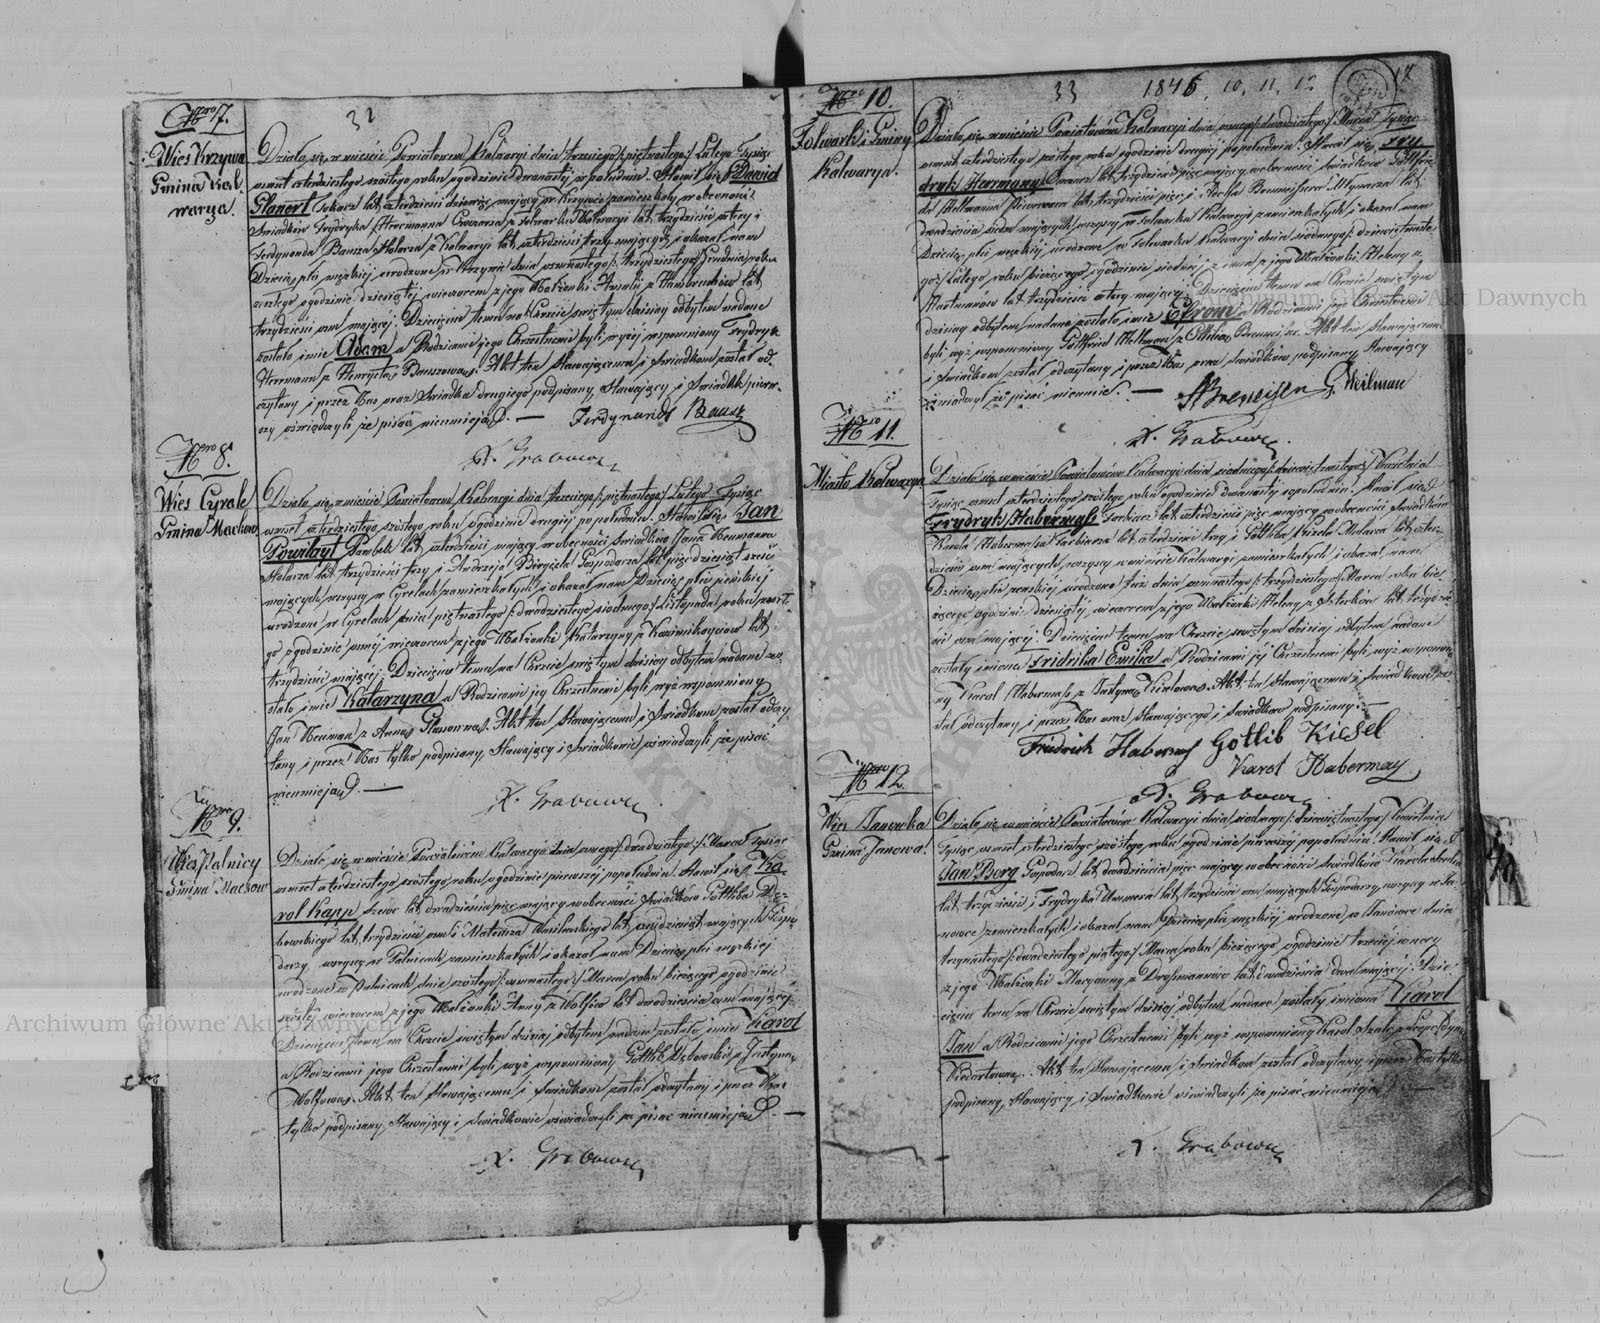 32
Nro 7.
Wieś Krzywa
Gmina Kal
warya.
Działo się w mieście Powiatowem Kalwaryi dnia trzeciego /: piętnastego :/ Lutego Tysiąc
ośmset czterdziestego szóstego roku o godzinie dwunastej w południe. Stawił się Dawid
Glanert Tokarz lat czterdzieści dziewięć mający w Krzywie zamieszkały w obecności
Świadków Frydryka Herrmanna Owczarza z Folwarku Kalwaryi lat trzydzieści cztery i
Ferdynanda Bausza Stolarza z Kalwaryi lat czterdzieści trzy mających i okazał nam
Dziecię płci męzkiej urodzone w Krzywie dnia ośmnastego /: trzydziestego :/ Grudnia roku
zeszłego o godzinie dziesiątej wieczorem z jego Małżonki Amalii z lat
trzydzieści ośm mającej. Dziecięciu temu na Chrzcie świętym dzisiaj odbytym nadane
zostało imie Adam a Rodzicami jego Chrzestnemi byli wyżej wspomniony Frydryk
Herrmann z Henryetą Bauszową. Akt ten Stawającemu i Świadkom został od
czytany i przez Nas oraz Świadka drugiego podpisany, Stawający i Świadek pierw
szy oświadczyli że pisać nieumieją. —
Ferdynandt Bausz
X. Grabowski
Nro 8.
Wieś Cyrale
Gmina Maćkow
Działo się w mieście Powiatowem Kalwaryi dnia trzeciego /: piętnastego :/ Lutego Tysiąc
ośmset czterdziestego szóstego roku o godzinie drugiej po południu. Stawił się Jan
Powilayt Parobek lat czterdzieści mający w obecności Świadków Jana Neumanna
Stolarza lat trzydzieści trzy i Andrzeja Gospodarza lat pięćdziesiąt sześć
mających wszyscy w Cyrelach zamieszkałych i okazał nam Dziecię płci żeńskiej
urodzone w Cyrelach dnia piętnastego /: dwudziestego siódmego :/ Listopada roku zeszłe
go o godzinie ósmej wieczorem z jego Małżonki Katarzyny z lat
trzydzieści mającej. Dziecięciu temu na Chrzcie świętym dzisiaj odbytym nadane zo
stało imie Katarzyna a Rodzicami jej Chrzestnemi byli wyż wspomniony
Jan Neuman z Anną Akt ten Stawającemu i Świadkom został odczy
tany i przez Nas tylko podpisany, Stawający i Świadkowie oświadczyli że pisać
nieumieją. —
X. Grabowski
Nro 9.
Wieś Palnicy
Gmina Maćkow
Działo się w mieście Powiatowem Kalwaryi dnia ósmego /: dwudziestego :/ Marca Tysiąc
ośmset czterdziestego szóstego roku o godzinie pierwszej po południu Stawił się Ka
rol Kapp Szewc lat dwadzieścia pięć mający w obecności Świadków Gottliba Dę
bowskiego lat trzydzieści ośm i Mateusza Wasilewskiego lat mających Gospo
darzy, wszyscy w Palnicach zamieszkałych i okazał nam Dziecię płci męzkiej
urodzone w Palnicach dnia szóstego /: ośmnastego :/ Marca roku bieżącego o godzinie
szóstej wieczorem z jego Małżonki Anny z Wolfów lat dwadzieścia ośm mającej.
Dziecięciu temu na Chrzcie świętym dzisiaj odbytym nadane zostało imie Karol
a Rodzicami jego Chrzestnemi byli wyż wspomniony Gottlib Dębowski z Justyną
Wolfową. Akt ten Stawającemu i Świadkom został odczytany i przez Nas
tylko podpisany, Stawający i Świadkowie oświadczyli że pisać nieumieją. —
X. Grabowski
33 1846. 10, 11, 12
Nro 10.
Folwark i Gminy
Kalwarya.
Działo się w mieście Powiatowem Kalwaryi dnia ósmego /: dwudziestego :/ Marca Tysiąc
ośmset czterdziestego szóstego roku o godzinie drugiej po południu. Stawił się Fry
dryk Herrmann Owczarz lat trzydzieści pięć mający w obecności Świadków Gottfrie
da Mellmanna Piwowara lat trzydzieści pięć i Adolfa Młynarza lat
dwadzieścia siedm mających wszyscy w Folwarku Kalwaryi zamieszkałych i okazał nam
Dziecię płci męzkiej urodzone w Folwarku Kalwaryi dnia siódmego /: dziewiętnaste
go :/ Lutego roku bieżącego o godzinie siódmej z rana z jego Małżonki Heleny z
Hartmanów lat trzydzieści cztery mającej. Dziecięciu temu na Chrzcie świętym
dzisiaj odbytym nadane zostało imie Efrom a Rodzicami jego Chrzestnemi
byli wyż wspomniony Gottfried Mellman z Ottilią Akt ten Stawającemu
i Świadkom został odczytany i przez Nas oraz Świadków podpisany, Stawający
oświadczył że pisać nieumie. —
ABreneisen G. Meilman
X. Grabowski.
Nro 11.
Miasto Kalwarya
Działo się w mieście Powiatowem Kalwaryi dnia siódmego /: dziewiętnastego :/ Kwietnia
Tysiąc ośmset czterdziestego szóstego roku o godzinie dwunastej w południe. Stawił się
Frydryk Habermass Farbierz lat czterdzieści pięć mający w obecności Świadków
Karola Habermassa Farbiarza lat czterdzieści trzy i Gottliba Kisela Malarza lat czter
dzieści ośm mających, wszyscy w mieście Kalwaryi zamieszkałych i okazał nam
Dziecię płci żeńskiej urodzone tuż dnia ośmnastego /: trzydziestego :/ Marca roku bie
żącego o godzinie dziesiątej wieczorem z jego Małżonki Heleny z lat trzydzie
ści ośm mającej. Dziecięciu temu na Chrzcie świętym dzisiaj odbytym nadane
zostały imiona Fridrika Emilia a Rodzicami jej Chrzestnemi byli wyż wspomnio
ny Karol Habermass z Justyną Kiselową. Akt ten Stawającemu i Świadkom zo
stał odczytany i przez Nas oraz Stawającego i Świadków podpisany. —
Friedrich Habermass Gotlib Kiesel
Karol Habermass
X. Grabowski
Nro 12.
Wieś Janowka
Gmina Janowa.
Działo się w mieście Powiatowem Kalwaryi dnia siódmego /: dziewiętnastego :/ Kwietnia
Tysiąc ośmset czterdziestego szóstego roku o godzinie pierwszej po południu Stawił się
Jan Berg Gospodarz lat dwadzieścia pięć mający w obecności Świadków Karola
lat trzydzieści i Frydryka lat trzydzieści ośm mających Gospodarzy, wszyscy w Ja
nowce zamieszkałych i okazał nam Dziecię płci męzkiej urodzone w Janowce dnia
trzynastego /: dwudziestego piątego :/ Marca roku bieżącego o godzinie trzeciej w nocy
z jego Małżonki Maryanny z lat dwadzieścia dwa mającej. Dzie
cięciu temu na Chrzcie świętym dzisiaj odbytym nadane zostały imiona Karol
Jan a Rodzicami jego Chrzestnemi byli wyż wspomniony Karol z
Akt ten Stawającemu i Świadkom został odczytany i przez Nas tylko
podpisany, Stawający i Świadkowie oświadczyli że pisać nieumieją. —
X. Grabowski
Archiwum Główne Akt Dawnych
Archiwum Główne Akt Dawnych